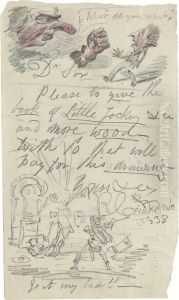 What do you want?
Dr Sir
Please to give the
book of Little Jockey
and more wood
worth so that will
pay for this drawing
Yours
1838
Go it my lads!!